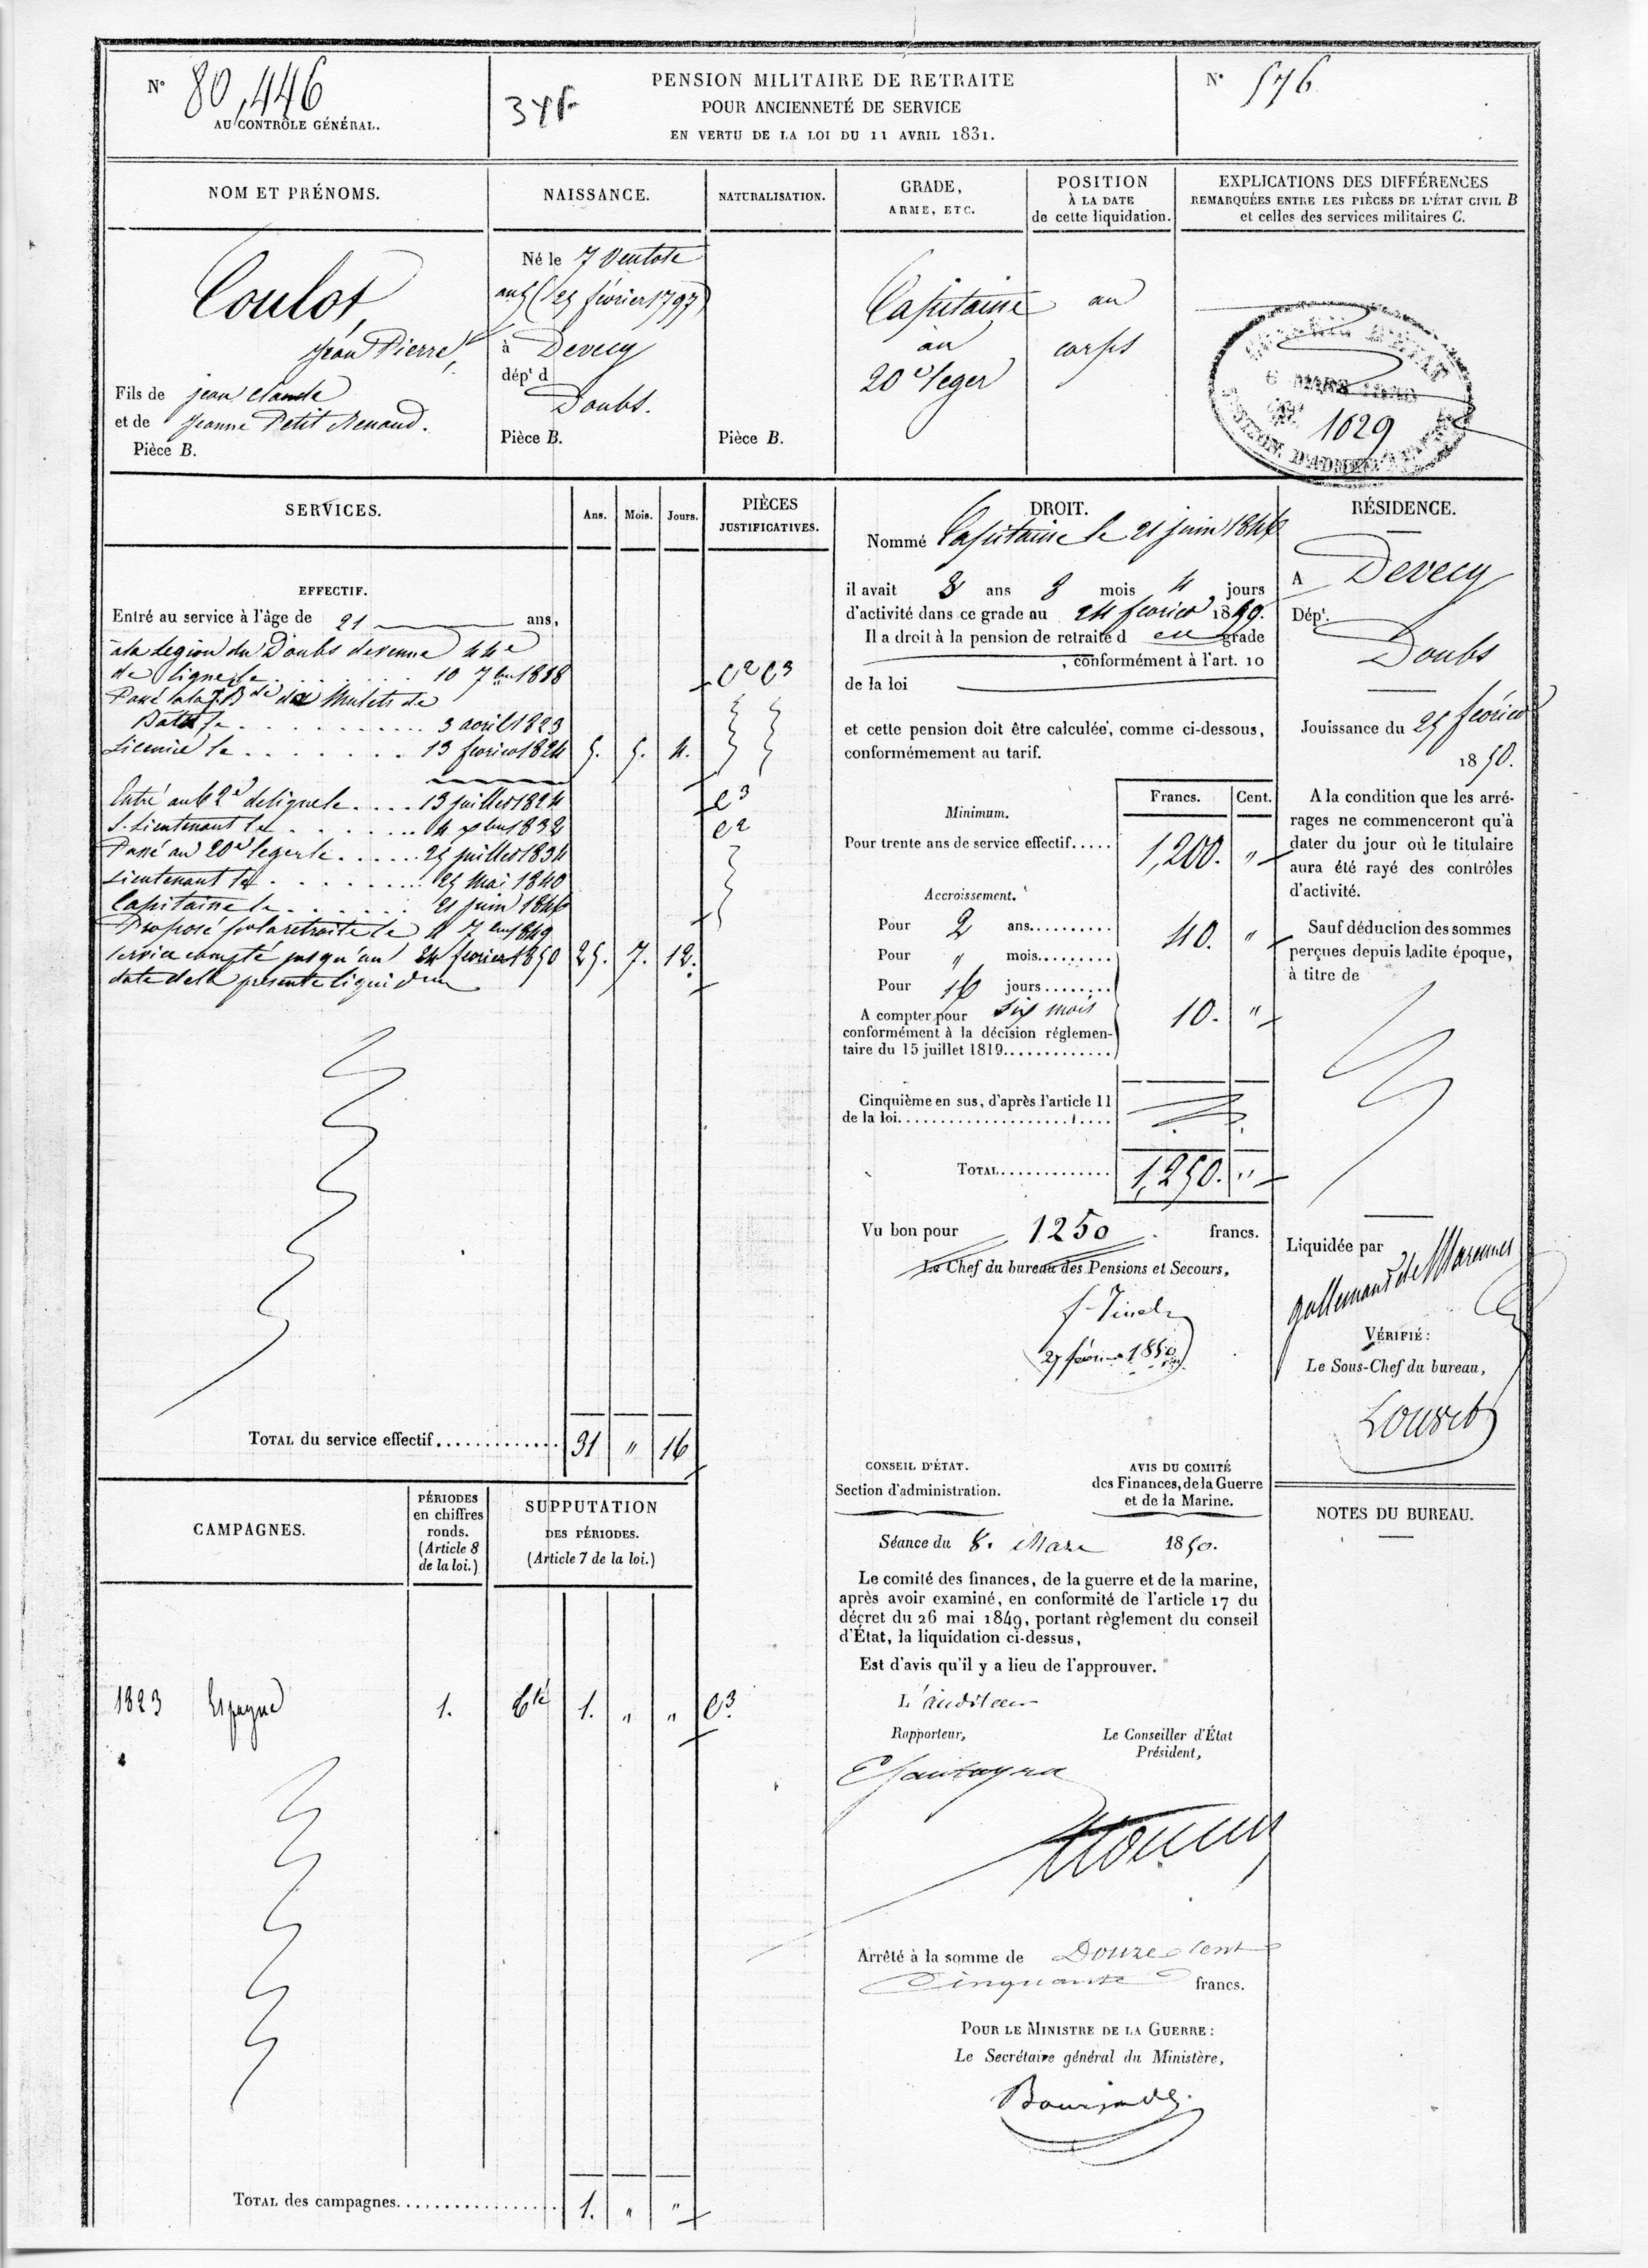 N° 80,446
AU CONTRÔLE GÉNÉRAL.
PENSION MILITAIRE DE RETRAITE
POUR ANCIENNETÉ DE SERVICE
EN VERTU DE LA LOI DU 11 AVRIL 1831.
N° 576
NOM ET PRÉNOMS.
NAISSANCE.
NATURALISATION.
GRADE,
ARME, ETC.
POSITION
À LA DATE
de cette liquidation.
EXPLICATIONS DES DIFFÉRENCES
REMARQUÉES ENTRE LES PIÈCES DE L'ÉTAT CIVIL B
et celles des services militaires C.
Coulot,
Jean Pierre,
Fils de jean claude
et de Jeanne Petit Renaud.
Pièce B.
Né le 7 Ventose
an 5 (25 février 1797)
à Devecy
dépt d
Doubs.
Pièce B.
Pièce B.
Capitaine
au
20e leger
au
corps
CONSEIL D'ÉTAT
6 MARS 1850
1629
SECTION D'ADMINISTRATION
SERVICES.
Ans.
Mois.
Jours.
PIÈCES
JUSTIFICATIVES.
EFFECTIF.
Entré au service à l'âge de 21 ans,
à la Légion du Doubs devenue 44e
de ligne le 10 7bre 1818 C2 C3
Passé à la 7 Bde de Mulets de
Bât le 3 avril 1823
Licencié le 13 fevrier 1824 5. 5. 4.
Entré au 62e de ligne le 13 juillet 1824 C3
S. Lieutenant le 4 xbre 1832 C2
Passé au 20e leger le 25 juillet 1834
Lieutenant le 25 Mai 1840
Capitaine le 21 juin 1846
Proposé pr la retraite le 4 7bre 1849
service compté jusqu'au 24 fevrier 1850 25. 7. 12.
date de la presente liquidon
TOTAL du service effectif 31 " 16
DROIT.
Nommé Capitaine le 21 juin 1846
il avait 3 ans 8 mois 4 jours
d'activité dans ce grade au 24 fevrier 1850.
Il a droit à la pension de retraite d ce grade
, conformément à l'art. 10
de la loi
et cette pension doit être calculée, comme ci-dessous,
conformément au tarif.
Francs.
Cent.
Minimum.
Pour trente ans de service effectif..... 1,200. "
Accroissement.
Pour 2 ans.......... 40. "
Pour " mois.........
Pour 16 jours........
A compter pour six mois 10. "
conformément à la décision réglemen-
taire du 15 juillet 1819.............
Cinquième en sus, d'après l'article 11
de la loi.
TOTAL............. 1,250. "
Vu bon pour 1250 francs.
Le Chef du bureau des Pensions et Secours,
27 février 1850
RÉSIDENCE.
A Devecy
Dépt.
Doubs
Jouissance du 25 fevrier
1850.
A la condition que les arré-
rages ne commenceront qu'à
dater du jour où le titulaire
aura été rayé des contrôles
d'activité.
Sauf déduction des sommes
perçues depuis ladite époque,
à titre de
Liquidée par
VÉRIFIÉ :
Le Sous-Chef du bureau,
Louvet
NOTES DU BUREAU.
CAMPAGNES.
PÉRIODES
en chiffres
ronds.
(Article 8
de la loi.)
SUPPUTATION
DES PÉRIODES.
(Article 7 de la loi.)
1823 Espagne 1. 1. " " C3
TOTAL des campagnes 1. " "
CONSEIL D'ÉTAT.
Section d'administration.
AVIS DU COMITÉ
des Finances, de la Guerre
et de la Marine.
Séance du 8. Mars 1850.
Le comité des finances, de la guerre et de la marine,
après avoir examiné, en conformité de l'article 17 du
décret du 26 mai 1849, portant règlement du conseil
d'État, la liquidation ci-dessus,
Est d'avis qu'il y a lieu de l'approuver.
L'auditeur
Rapporteur,
Le Conseiller d'État
Président,
Arrêté à la somme de Douze Cent
Cinquante francs.
POUR LE MINISTRE DE LA GUERRE :
Le Secrétaire général du Ministère,